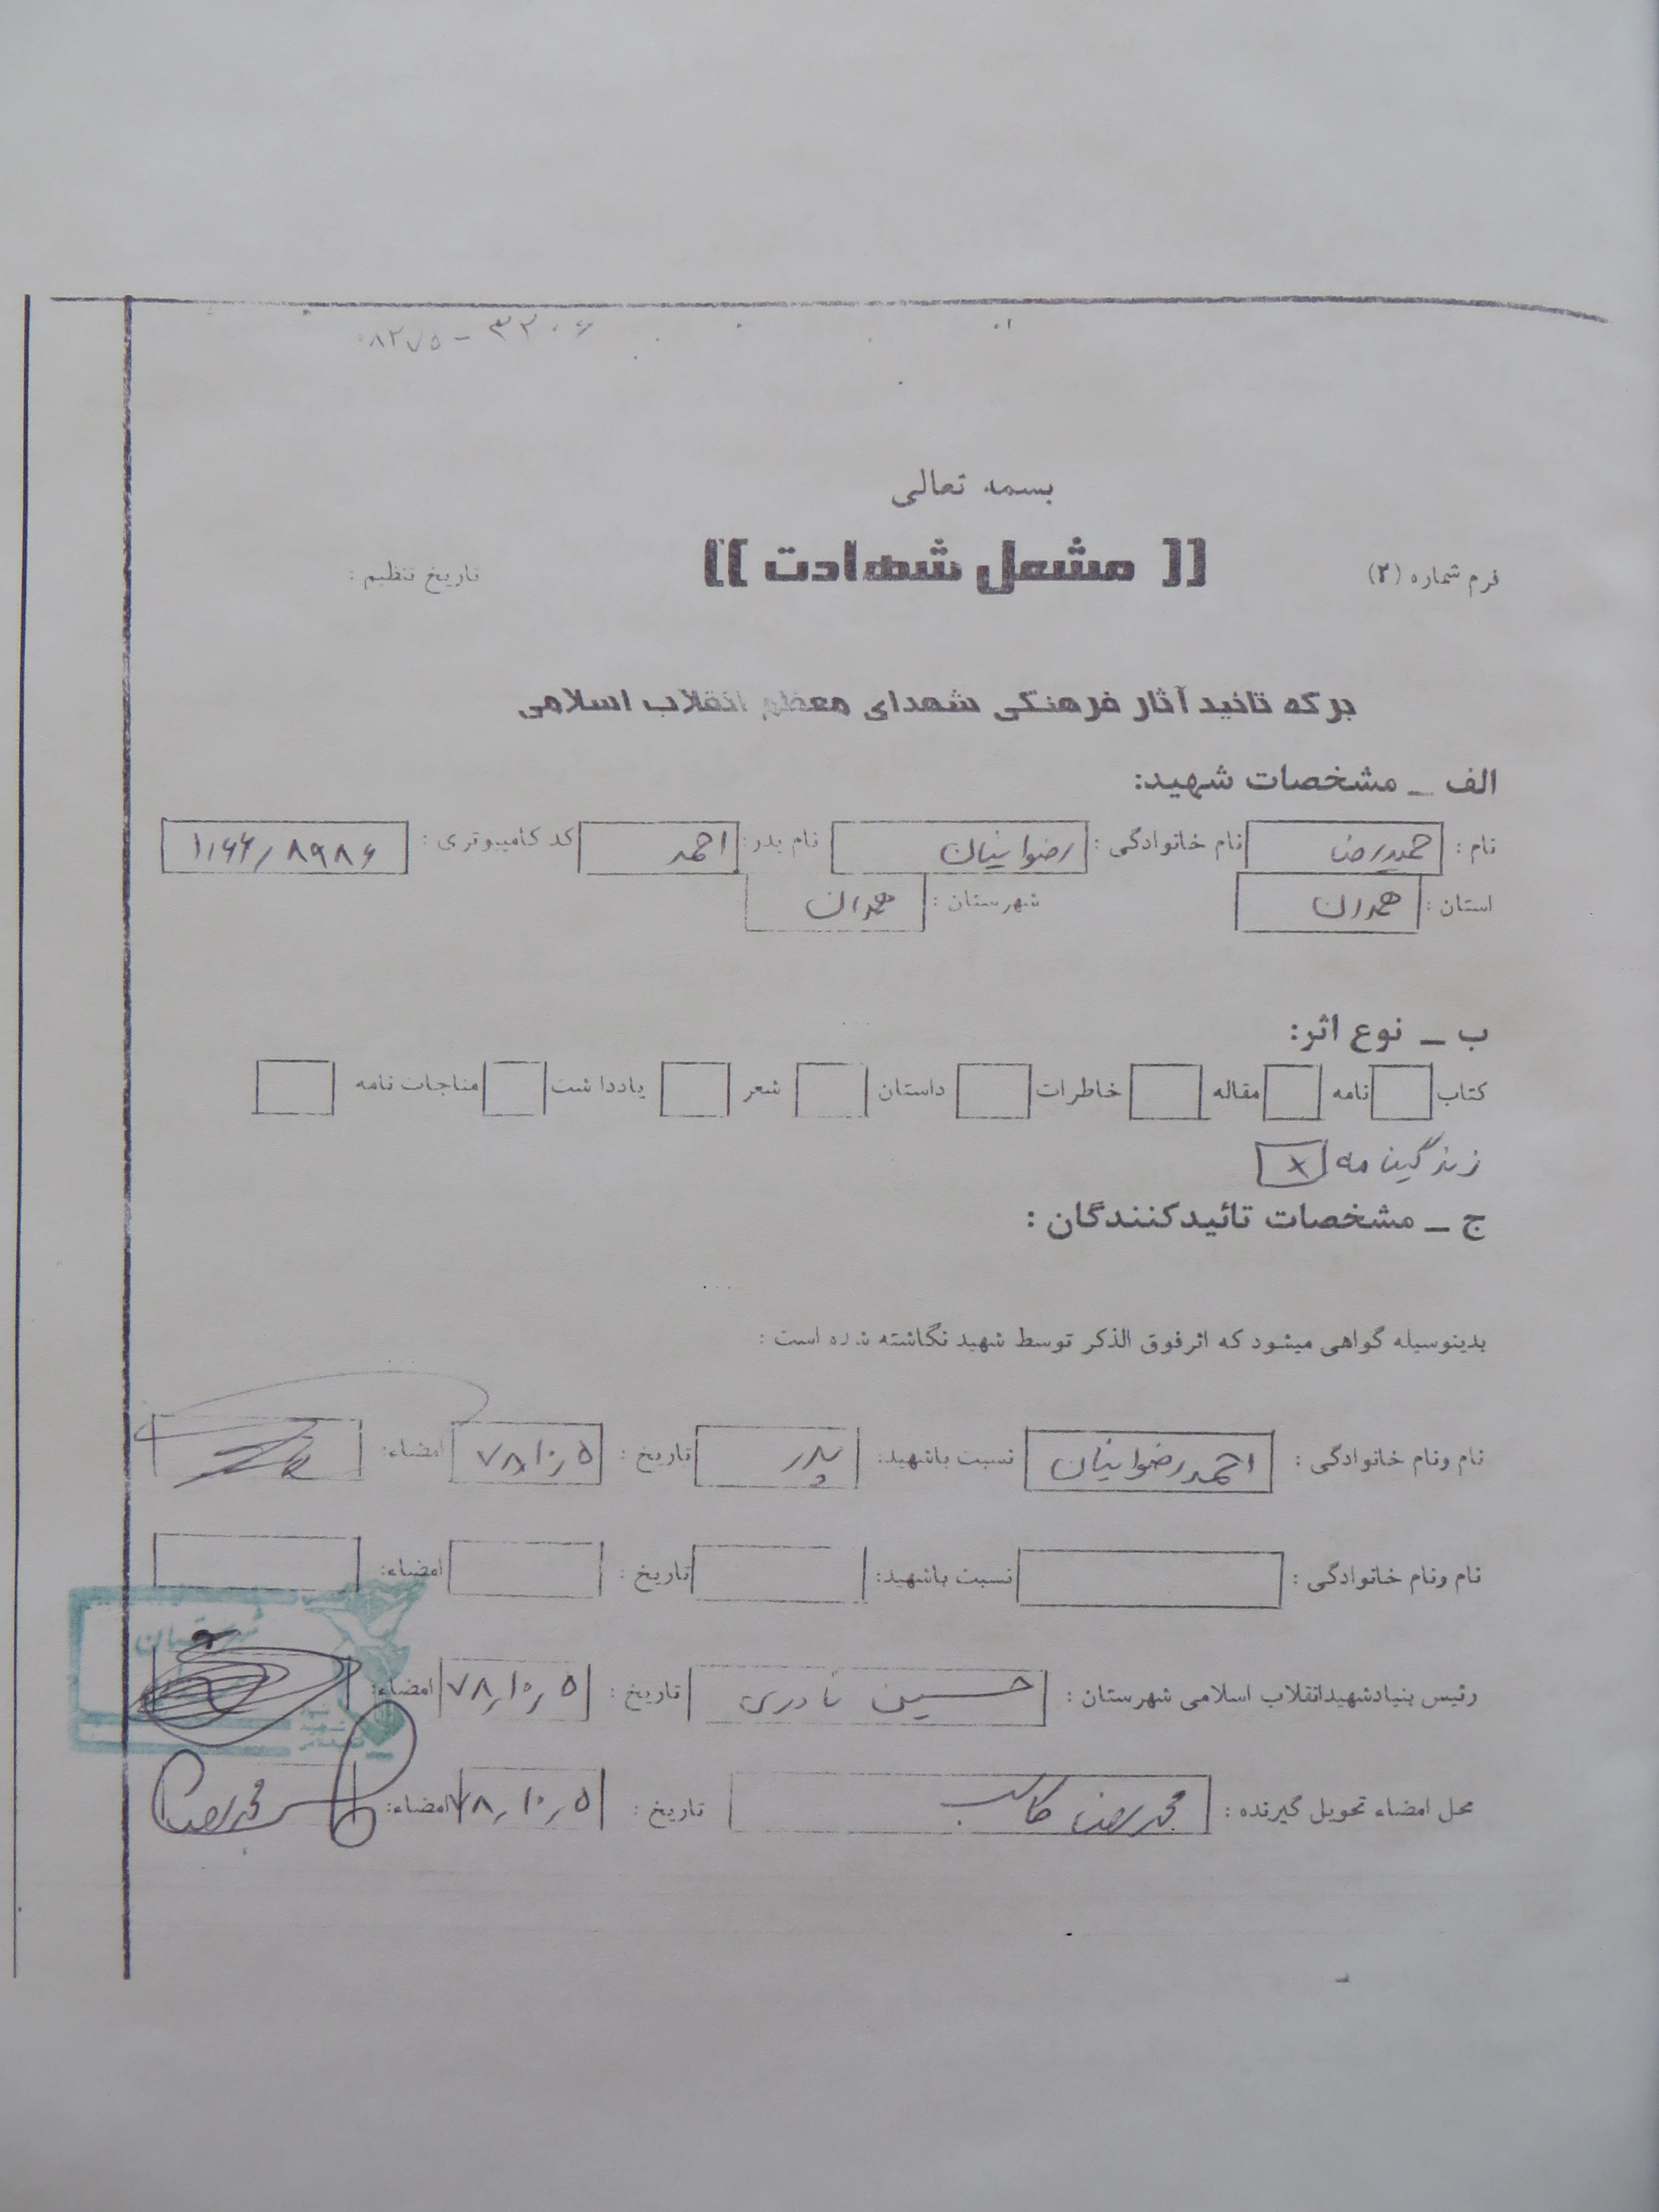 ۳۲۰۶ - ۸۲۷۵
بسمه تعالی
فرم شماره (۲)
[[ مشعل شهادت ]]
تاریخ تنظیم :
برگه تائید آثار فرهنگی شهدای معظم انقلاب اسلامی
الف ـ مشخصات شهید:
نام : حمیدرضا نام خانوادگی : رضوانیان نام پدر: احمد کد کامپیوتری : ۱۰۶۶/۸۹۸۶
استان : همدان شهرستان : همدان
ب ـ نوع اثر:
کتاب نامه مقاله خاطرات داستان شعر یادداشت مناجات نامه
زندگینامه x
ج ـ مشخصات تائیدکنندگان :
بدینوسیله گواهی میشود که اثر فوق الذکر توسط شهید نگاشته شده است :
نام ونام خانوادگی : احمد رضوانیان نسبت باشهید: پدر تاریخ : ۷۸/۱۰/۵ امضاء:
نام ونام خانوادگی : نسبت باشهید: تاریخ : امضاء:
رئیس بنیادشهیدانقلاب اسلامی شهرستان : حسین نادری تاریخ : ۷۸/۱۰/۵ امضاء:
محل امضاء تحویل گیرنده : محمدرضا تاریخ : ۷۸/۱۰/۵ امضاء: محمدرضا